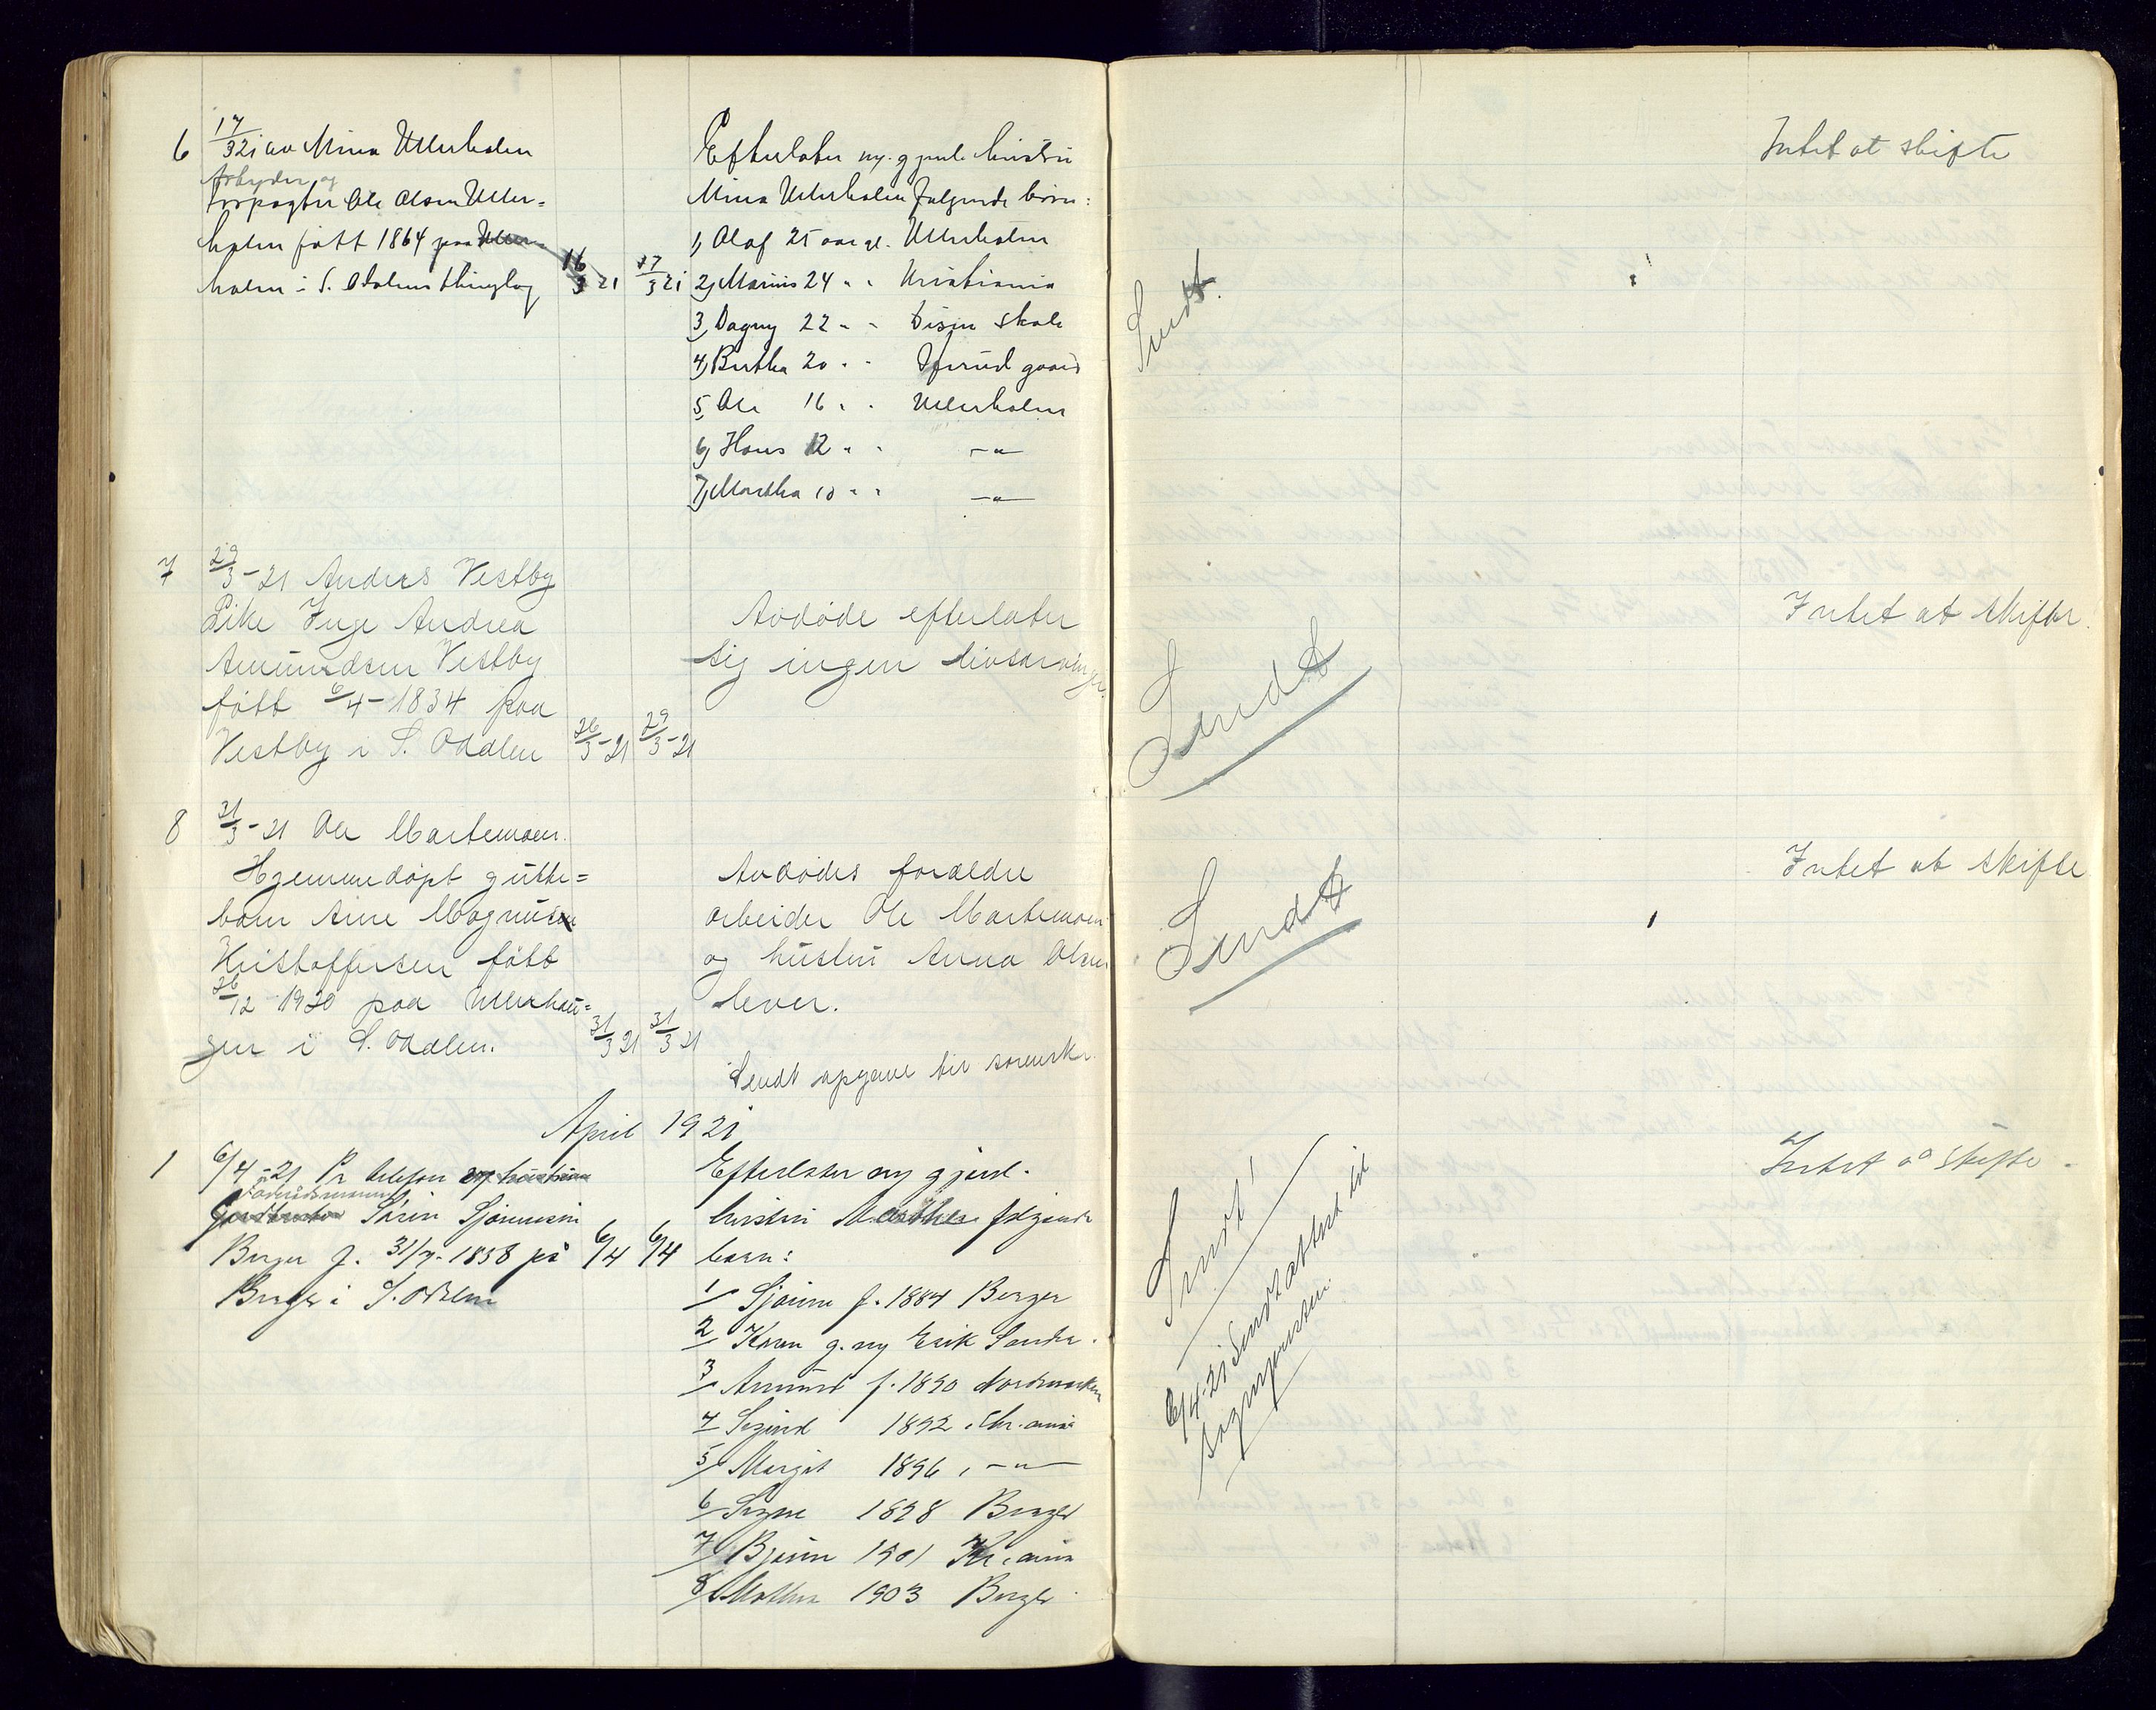 6 17/3 21 av Mina Ullerholen
Arbeider og
forpagter Ole Olsen Uller=
holen født 1864 paa Uller
holen i S. Odalens thinglag 16/3 21 17/3 21
Efterlater sig gjenl. hustru
Mina Ullerholen følgende børn:
1, Olaf 25 aar gl. Ullerholen
2, Marius 24 " " Kristiania
3, Dagny 22 " " Disen skole
4, Bertha 20 " " gaard
5, Ole 16 " " Ullerholen
6, Hans 12 " " —"—
7, Martha 10 " " —"—
Sendt.
Intet at skifte
7 29/3-21 Anders Vestby
Pike Inge Andrea
Amundsen Vestby
født 6/4-1834 paa
Vestby i S. Odalen 26/3-21 29/3-21
Avdøde efterlater
sig ingen livsarvinger.
Sendt
Intet at skifte.
8 31/3-21 Ole Martemoen.
Hjemmedøpt gutte=
barn Arne Magnus
Kristoffersen født
26/12 1920 paa Ullerhau=
gen i S. Odalen. 31/3 21 31/3 21
Avdødes forældre
arbeider Ole Martemoen
og hustru Anna Olsen
lever.
Sendt opgave til sorenskr.
Sendt
Intet at skifte
April 1921
1 6/4-21 Pr telefon
Føderaadsmand
Søren Sjønnesen
Berger f. 31/7-1858 på 6/4 6/4
Berger i S. Odalen
Efterlater sig gjenl.
hustru Mathea følgende
barn:
1/ Sjønne f. 1884 Berger
2/ Karen g. m. Erik Sander.
3/ Amund f. 1890 Nordmarken
4/ Sigurd 1892 Chr.ania
5/ Margit 1896 —"—
6/ Signe 1898 Berger
7/ Bjarne 1901 Kr.ania
8/ Mathea 1903 Berger
Sendt!
6/4-21 Sendt attest til
sognepresten
Intet å skifte.